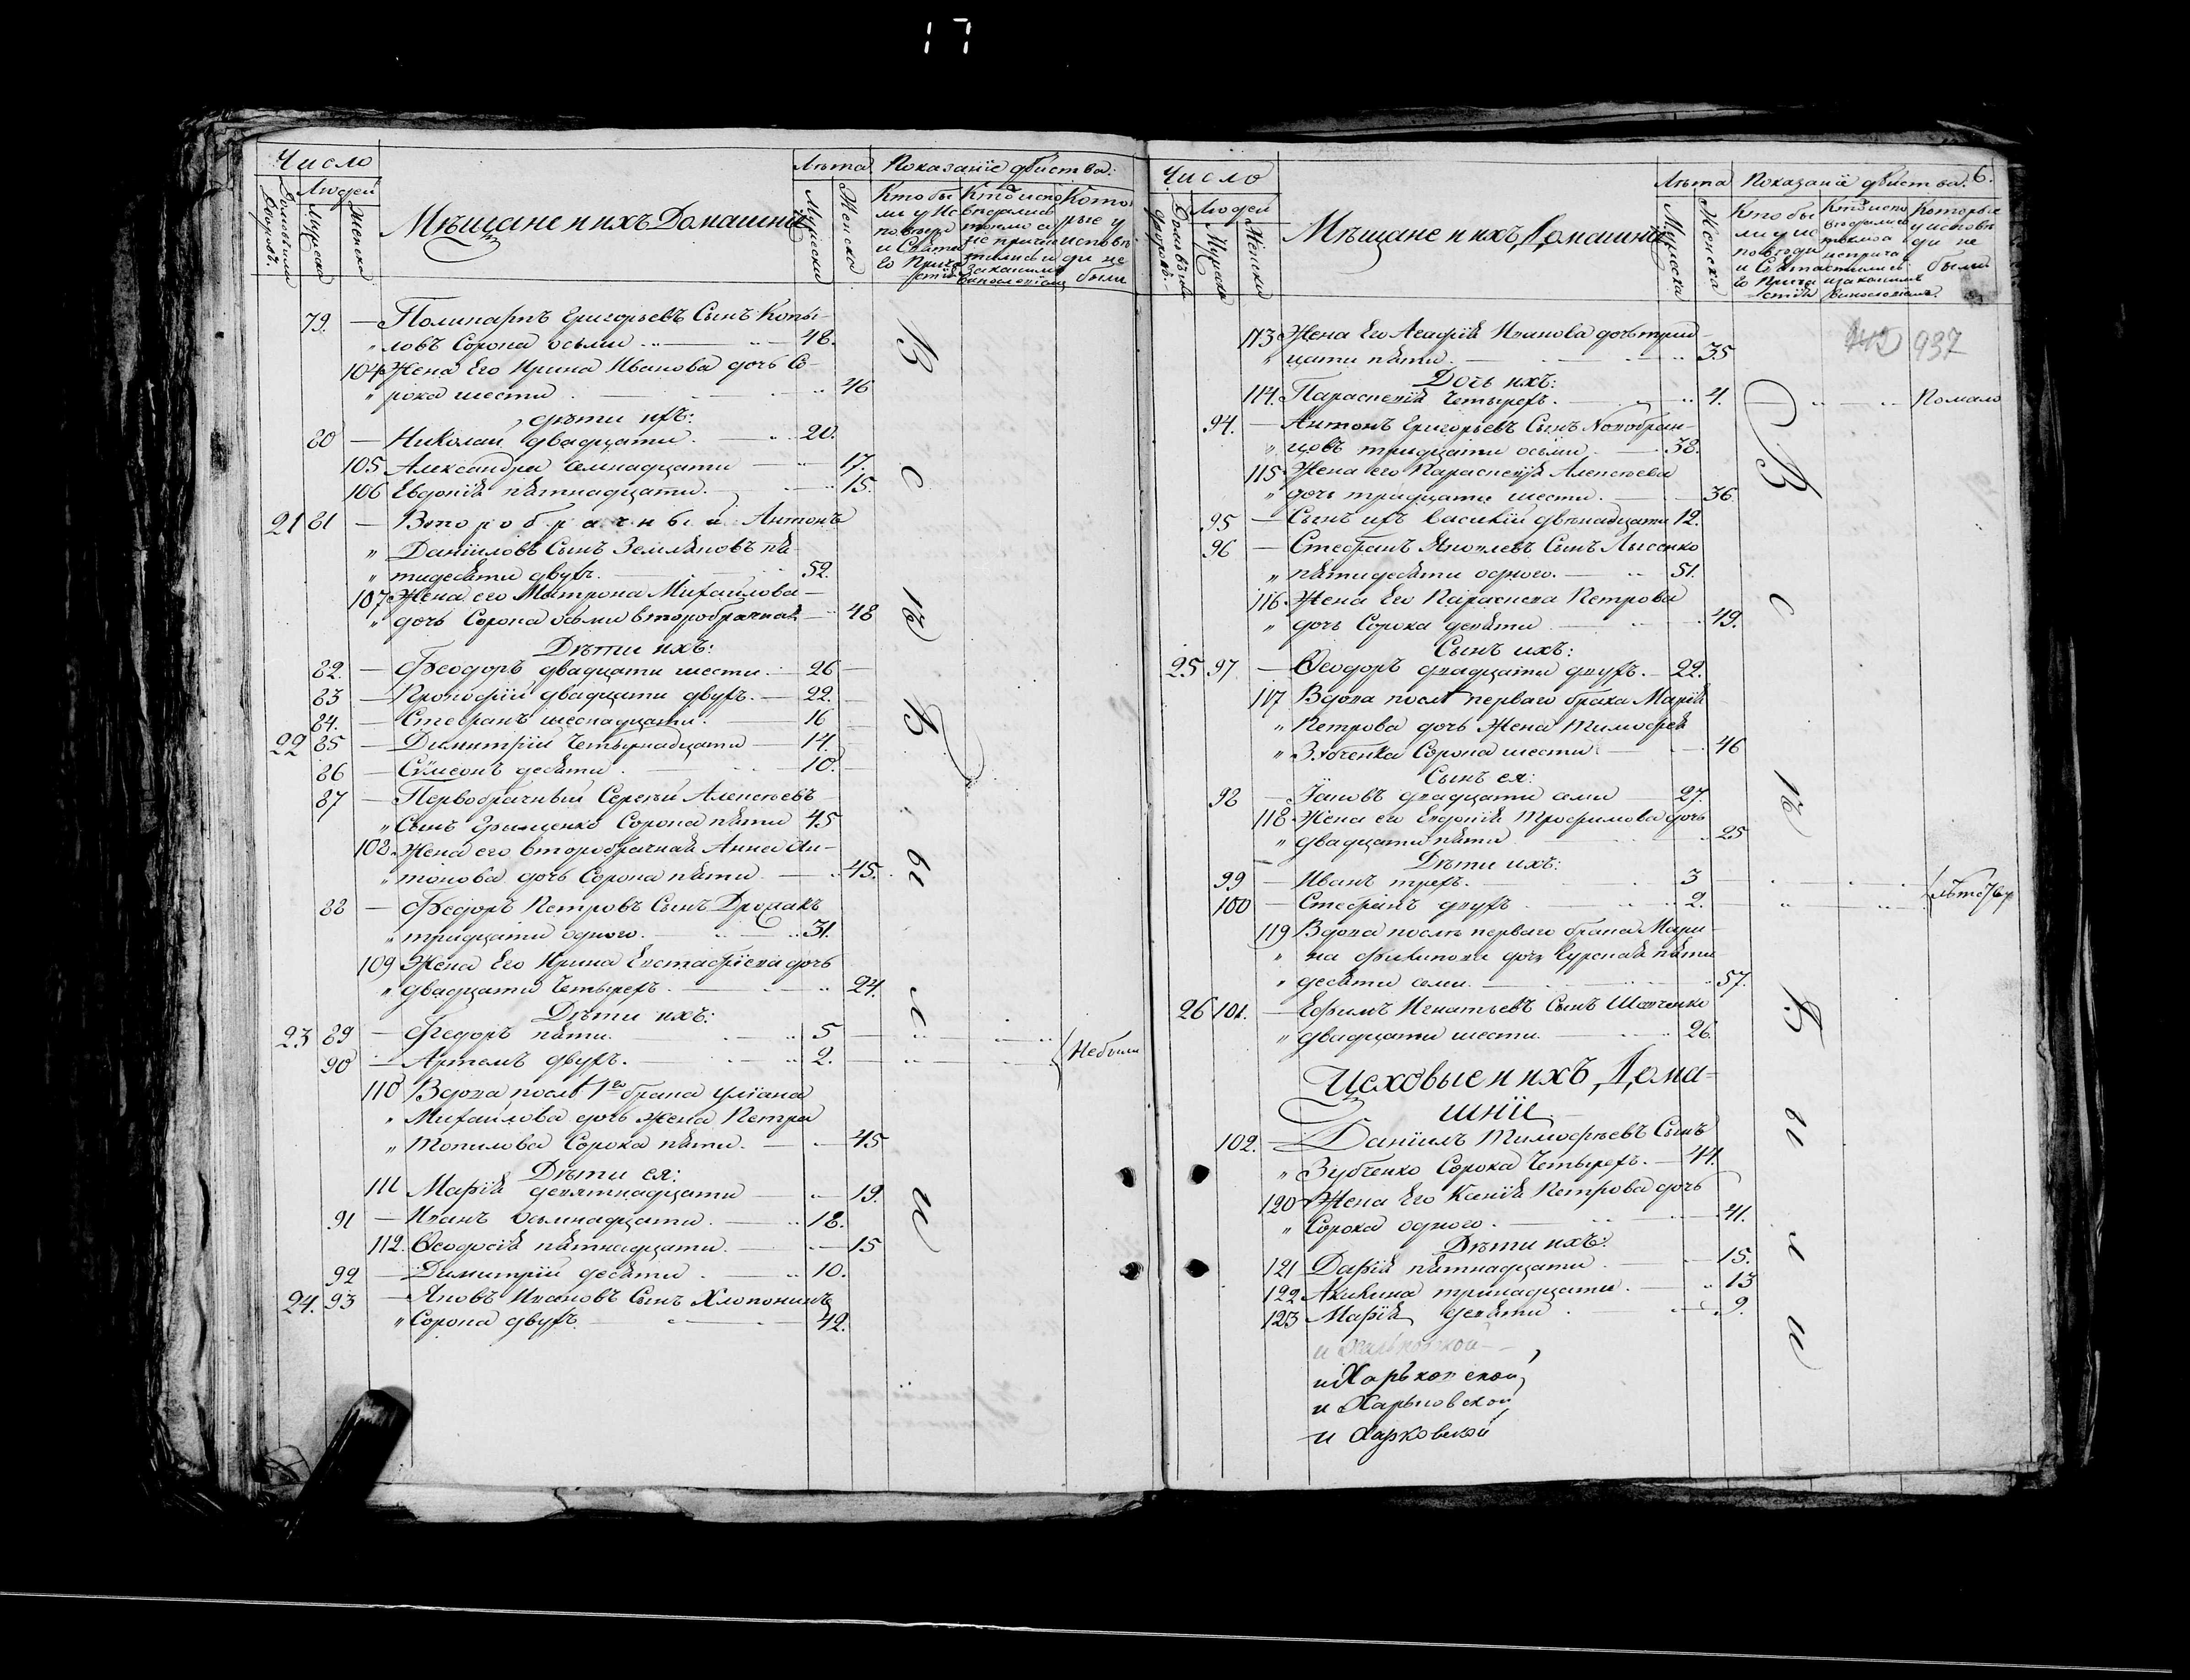 17
Число
Лѣта Показаніе дѣйства:
Людей
Мужеска
Женска
Мѣщане и ихъ Домашнїе
Мужески
Женска
79. — Поликарпъ Григорьевъ Сынъ Копы-
„ ловъ Сорока осьми 48.
104 Жена Его Ирина Иванова дочь Со-
„ рока шести 46
дѣти ихъ:
80 — Николай двадцати 20.
105 Александра семнадцати 17.
106 Евдокія пятнадцати 15.
21 81 — Второбрачный Антонъ
„ Даніиловъ Сынъ Земляковъ пя-
„ тидесяти двухъ 52.
107 Жена его Матрона Михайлова
„ дочь Сорока осьми второбрачная 48
Дѣти ихъ:
82. — Феодоръ двадцати шести 26
83 — Прокофій двадцати двухъ 22.
84. — Стефанъ шеснадцати 16
22 85 — Димитрій Четырнадцати 14.
86 — Сѵмеонъ десяти 10.
87 — Первобрачный Сергѣй Алексѣевъ
„ Сынъ Грищенко Сорока пяти 45
108 Жена его второбрачная Анна Ан-
„ тонова дочь Сорока пяти 45.
88 — Федоръ Петровъ Сынъ
„ тридцати одного 31.
109 Жена Его Ирина Евстафіева дочь
„ двадцати Четырехъ 24.
Дѣти ихъ:
23 89 — Федоръ пяти 5
90 — Артемъ двухъ 2. Небыли
110 Вдова послѣ 1го брака Уліана
„ Михайлова дочь Жена Петра
„ Топилова Сорока пяти 45
Дѣти ея:
111 Марія девятнадцати 19.
91 — Иванъ Осьмнадцати 18.
112. Ѳеодосія пятнадцати 15
92 — Димитрій десяти 10.
24. 93 — Яковъ Ивановъ Сынъ Хлопонинъ
„ Сорока двухъ 42.
Всѣ были
Число
Лѣта Показаніе дѣйства. 6.
Людей
Мужеска
Женска
Мѣщане и ихъ Домашнїе
Мужеска
Женска
937
113 Жена Его Агафія Иванова дочь трид-
„ цати пяти 35
Дочь ихъ:
114. Параскевія Четырехъ 4. Помало
94. — Антонъ Григорьевъ Сынъ Новобран-
„ цовъ тридцати осьми 38.
115 Жена его Параскевія Алексѣева
„ дочь тридцати шести 36.
95 — Сынъ ихъ Василій двѣнадцати 12.
96 — Стефанъ Яковлевъ Сынъ Лысенко
„ пятидесяти одного 51.
116 Жена Его Параскева Петрова
„ дочь Сорока девяти 49.
Сынъ ихъ:
25 97 — Ѳеодоръ двадцати двухъ 22.
117 Вдова послѣ перваго брака Марія
„ Петрова дочь Жена Тимофея
„ Зубченка Сорока шести 46
Сынъ ея:
98 — Іаковъ двадцати семи 27.
118 Жена его Евдокія Трофимова дочь
„ двадцати пяти 25
Дѣти ихъ:
99 — Иванъ трехъ 3
100 — Стефанъ двухъ 2.
119 Вдова послѣ перваго брака Мари-
„ на Филипова дочь Курская пяти-
„ десяти семи 57.
26 101. — Ефимъ Игнатьевъ Сынъ Шевченко
„ двадцати шести 26.
Цеховые и ихъ Дома-
шнїе
102. — Даніилъ Тимофѣевъ Сынъ
„ Зубченко Сорока Четырехъ 44.
120 Жена Его Ксенія Петрова дочь
„ Сорока одного 41.
Дѣти ихъ:
121 Дарія пятнадцати 15.
122 Акилина тринадцати 13
123 Марія девяти 9.
и Харьковской
и Харьковской
и Харьковской
и Харковской
Всѣ были